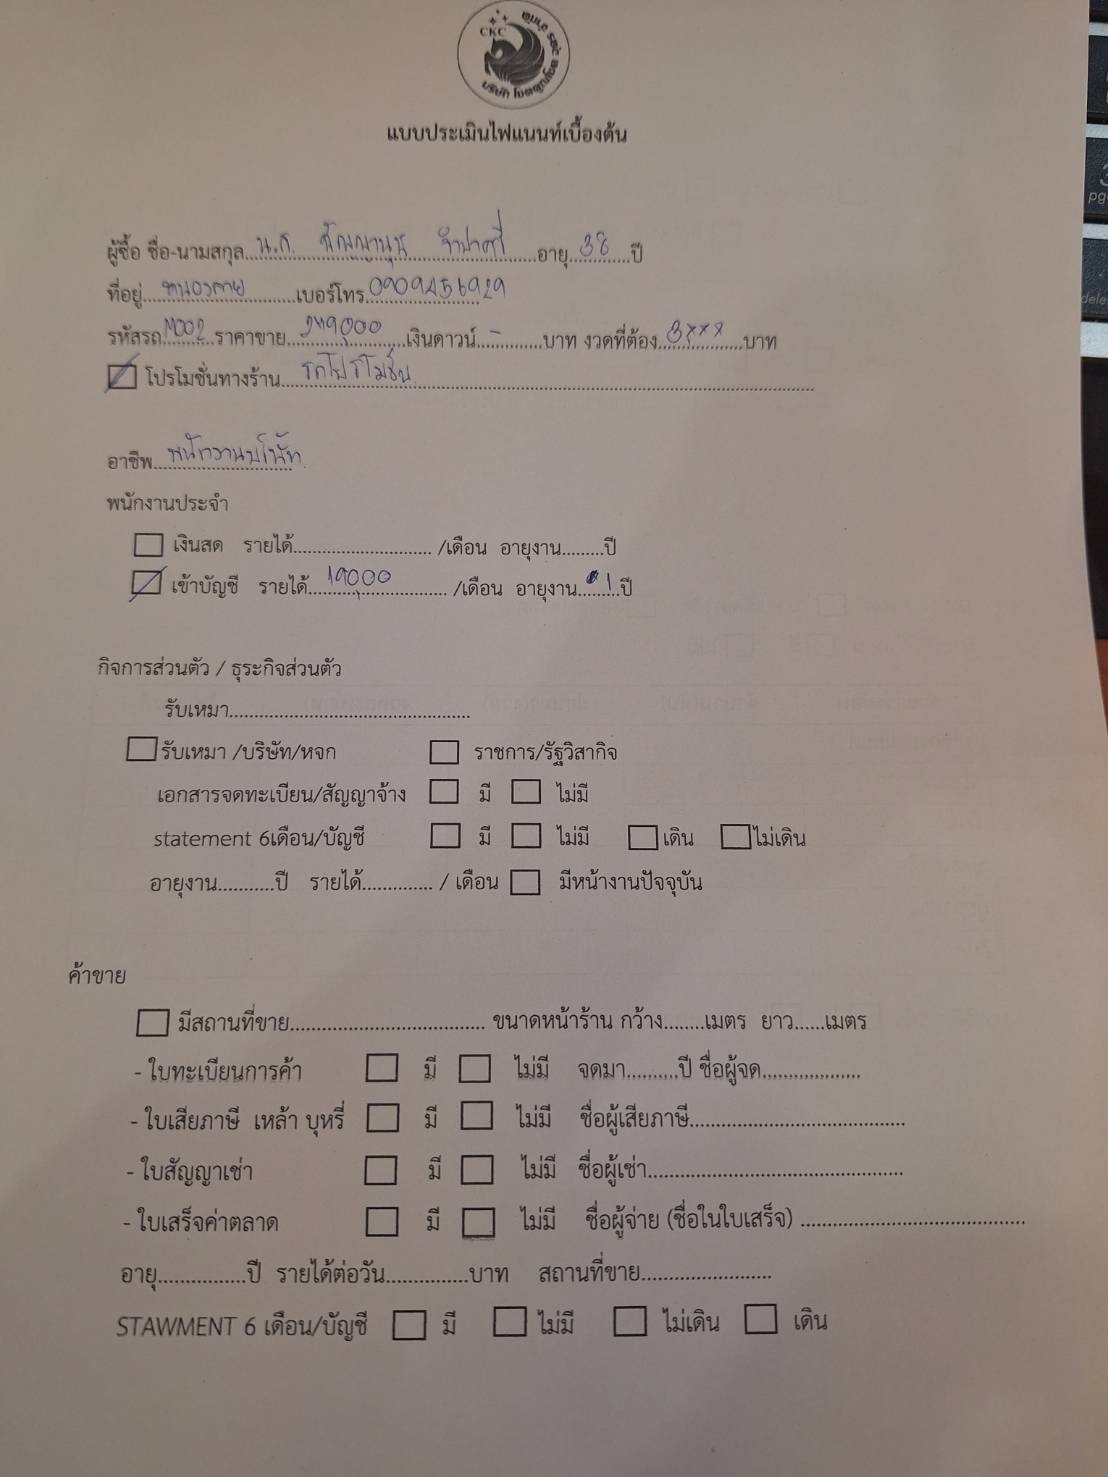 CKC
แบบประเมินไฟแนนท์เบื้องต้น
ผู้ซื้อ ชื่อ-นามสกุล น.ส. อายุ 38 ปี
ที่อยู่ หนองคาย เบอร์โทร 0909456929
รหัสรถ M002 ราคาขาย 249,000 เงินดาวน์ - บาท งวดที่ต้อง 3xxx บาท
โปรโมชั่นทางร้าน รถโปรโมชั่น
อาชีพ พนักงานบริษัท
พนักงานประจำ
เงินสด รายได้ /เดือน อายุงาน ปี
เข้าบัญชี รายได้ 19,000 /เดือน อายุงาน 1 ปี
กิจการส่วนตัว / ธุระกิจส่วนตัว
รับเหมา
รับเหมา /บริษัท/หจก ราชการ/รัฐวิสากิจ
เอกสารจดทะเบียน/สัญญาจ้าง มี ไม่มี
statement 6เดือน/บัญชี มี ไม่มี เดิน ไม่เดิน
อายุงาน ปี รายได้ / เดือน มีหน้างานปัจจุบัน
ค้าขาย
มีสถานที่ขาย ขนาดหน้าร้าน กว้าง เมตร ยาว เมตร
- ใบทะเบียนการค้า มี ไม่มี จดมา ปี ชื่อผู้จด
- ใบเสียภาษี เหล้า บุหรี่ มี ไม่มี ชื่อผู้เสียภาษี
- ใบสัญญาเช่า มี ไม่มี ชื่อผู้เช่า
- ใบเสร็จค่าตลาด มี ไม่มี ชื่อผู้จ่าย (ชื่อในใบเสร็จ)
อายุ ปี รายได้ต่อวัน บาท สถานที่ขาย
STAWMENT 6 เดือน/บัญชี มี ไม่มี ไม่เดิน เดิน